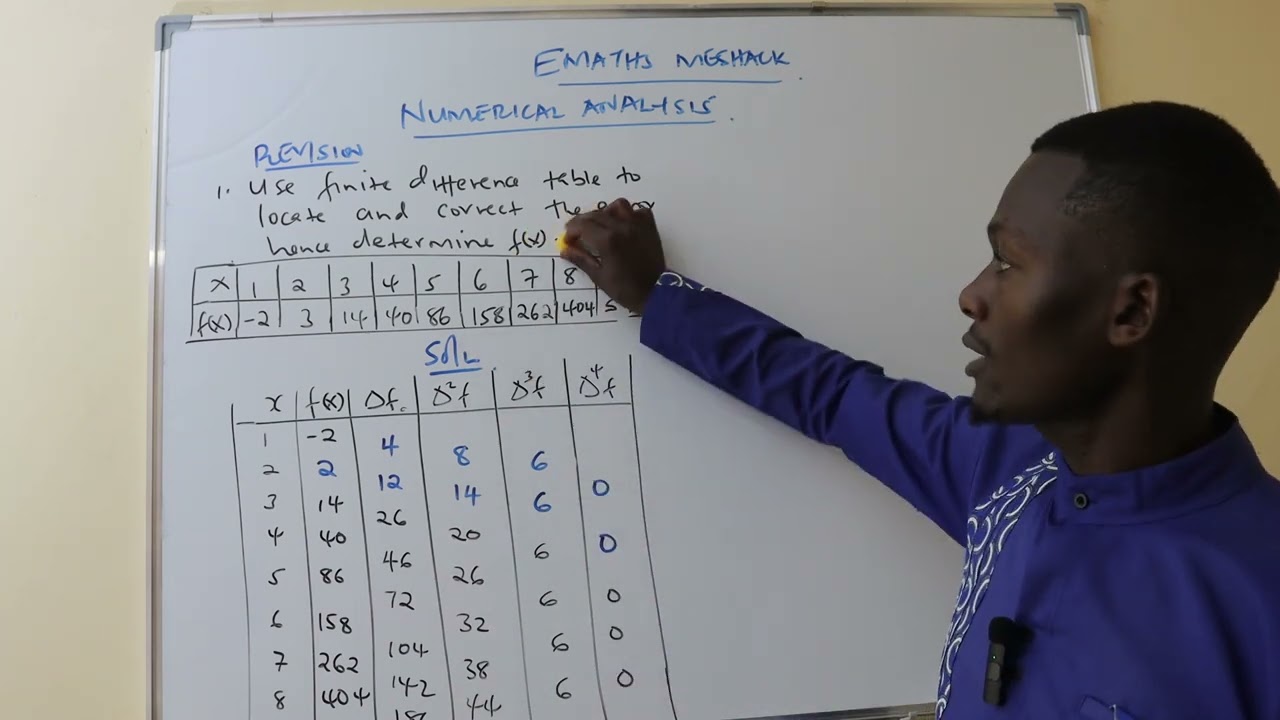 EMATHS MESHACK.
NUMERICAL ANALYSIS.
REVISION
1. Use finite difference table to
locate and correct the
hence determine f(x).
x 1 2 3 4 5 6 7 8
f(x) -2 3 14 40 86 158 262 404 5
SOLN.
x f(x) Δf Δ²f Δ³f Δ⁴f
1 -2
4
2 2 8
12 6
3 14 14 0
26 6
4 40 20 0
46 6
5 86 26 0
72 6
6 158 32 0
104 6
7 262 38 0
142 6
8 404 44